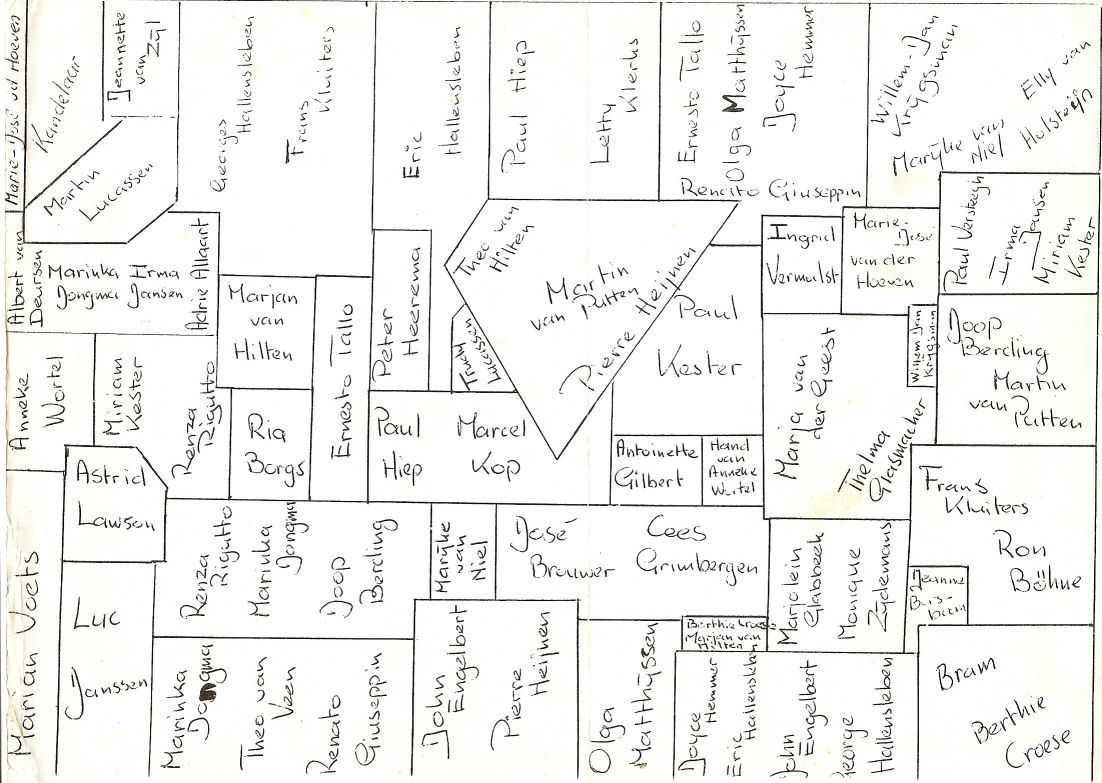 Marie-José vd Hoeven
Kandelaar
Jeannette
van
Zijl
Martin
Lucassen
Georges
Hallensleben
Frans
Kluiters
Eric
Hallensleben
Paul Hiep
Letty
Klerks
Ernesto Tallo
Olga Matthijssen
Joyce
Hemmer
Renato Giuseppin
Willem-Jan
Krijgsman
Marijke van
Niel
Elly van
Holsteijn
Albert van
Deursen
Marinka
Jongma
Irma
Jansen
Adrie Allaart
Marjan
van
Hilten
Ernesto Tallo
Peter
Heerema
Theo van
Hilten
Trudy
Lucassen
Martin
van Putten
Pierre Heijnen
Paul
Kester
Ingrid
Vermulst
Marie-
José
van der
Hoeven
Paul Versteegh
Irma
Jansen
Miriam
Kester
Anneke
Wortel
Miriam
Kester
Renza
Rigutto
Ria
Borgs
Paul
Hiep
Marcel
Kop
Antoinette
Gilbert
Hand
van
Anneke
Wortel
Marja van
der Geest
Thelma
Glasmacher
Willem Jan
Krijgsman
Joop
Berding
Martin
van Putten
Astrid
Lawson
Renza
Rigutto
Marinka
Jongma
Joop
Berding
Marijke
van
Niel
José
Brouwer
Cees
Grimbergen
Marjolein
Glabbeek
Monique
Zijdemans
Frans
Kluiters
Ron
Böhne
Jeanne
Marian Voets
Luc
Janssen
Marinka
Jongma
Theo van
Veen
Renato
Giuseppin
John
Engelbert
Pierre
Heijnen
Olga
Matthijssen
Berthie Croese
Marjan van
Hilten
Joyce
Hemmer
Eric
Hallensleben
John
Engelbert
George
Hallensleben
Bram
Berthie
Croese